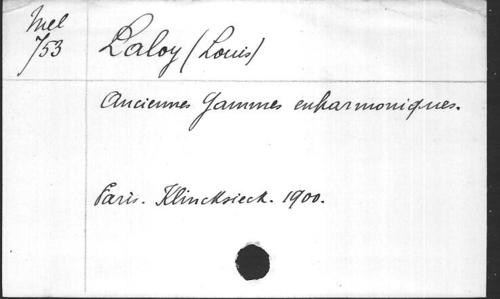 Mel
753
Laloy (Louis)
Anciennes Gammes enharmoniques.
Paris. Klincksieck. 1900.